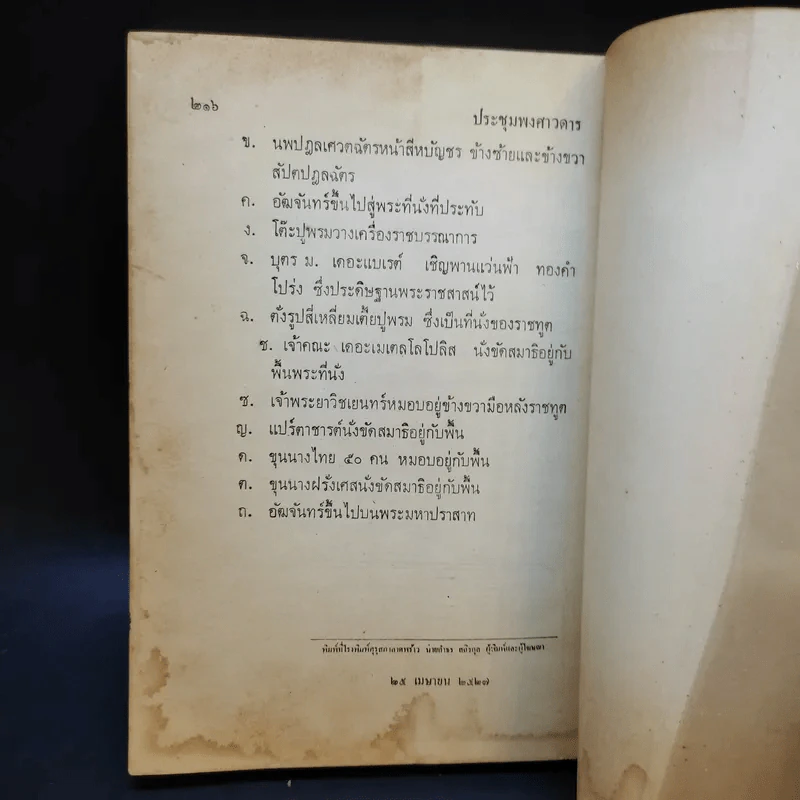 ๒๑๖
ประชุมพงศาวดาร
ข. นพปฎลเศวตฉัตรหน้าสีหบัญชร ข้างซ้ายและข้างขวา
สัปตปฎลฉัตร
ค. อัฒจันทร์ขึ้นไปสู่พระที่นั่งที่ประทับ
ง. โต๊ะปูพรมวางเครื่องราชบรรณาการ
จ. บุตร ม. เดอะแบเรต์ เชิญพานแว่นฟ้า ทองคำ
โปร่ง ซึ่งประดิษฐานพระราชสาสน์ไว้
ฉ. ตั่งรูปสี่เหลี่ยมเตี้ยปูพรม ซึ่งเป็นที่นั่งของราชทูต
ช. เจ้าคณะ เดอะเมเตลโลโปลิส นั่งขัดสมาธิอยู่กับ
พื้นพระที่นั่ง
ซ. เจ้าพระยาวิชเยนทร์หมอบอยู่ข้างขวามือหลังราชทูต
ญ. แปร์ตาชารต์นั่งขัดสมาธิอยู่กับพื้น
ด. ขุนนางไทย ๕๐ คน หมอบอยู่กับพื้น
ต. ขุนนางฝรั่งเศสนั่งขัดสมาธิอยู่กับพื้น
ถ. อัฒจันทร์ขึ้นไปบนพระมหาปราสาท
พิมพ์ที่โรงพิมพ์คุรุสภาลาดพร้าว นายกำธร สถิรกุล ผู้พิมพ์และผู้โฆษณา
๒๕ เมษายน ๒๕๒๗